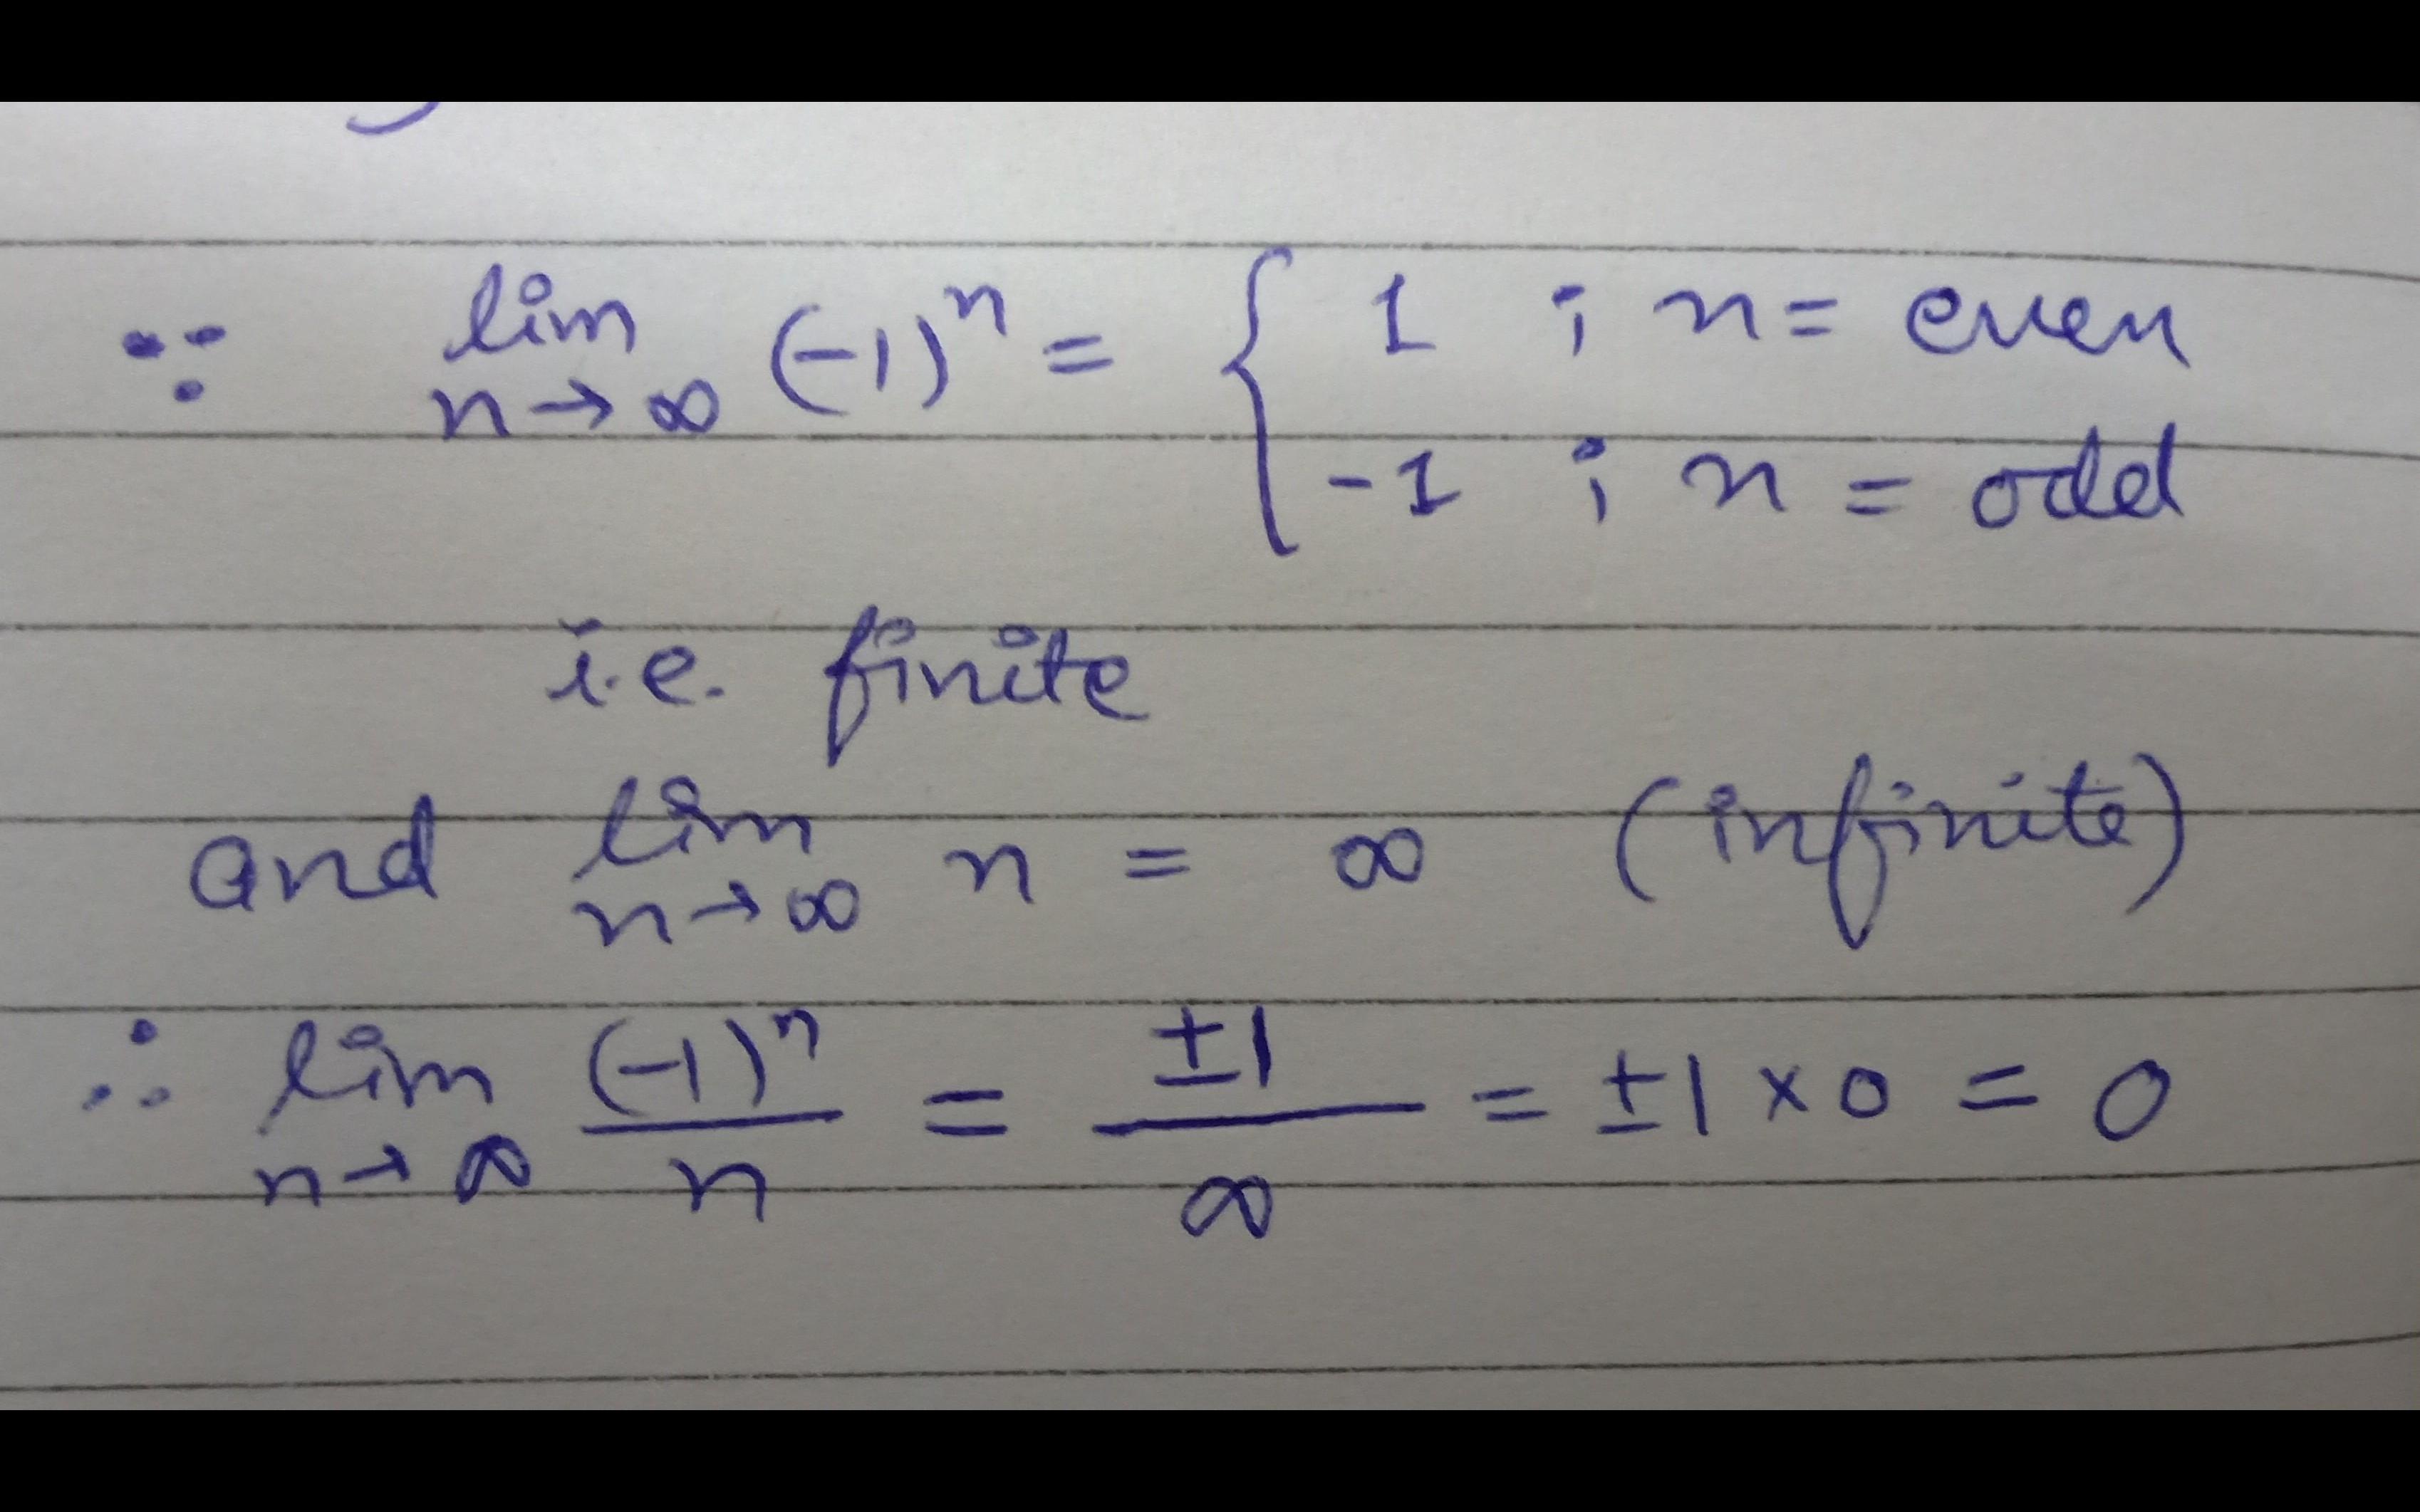 ∵ lim n→∞ (-1)ⁿ = { 1 ; n = even
-1 ; n = odd
i.e. finite
and lim n→∞ n = ∞ (infinite)
∴ lim n→∞ (-1)ⁿ/n = ±1/∞ = ±1 × 0 = 0